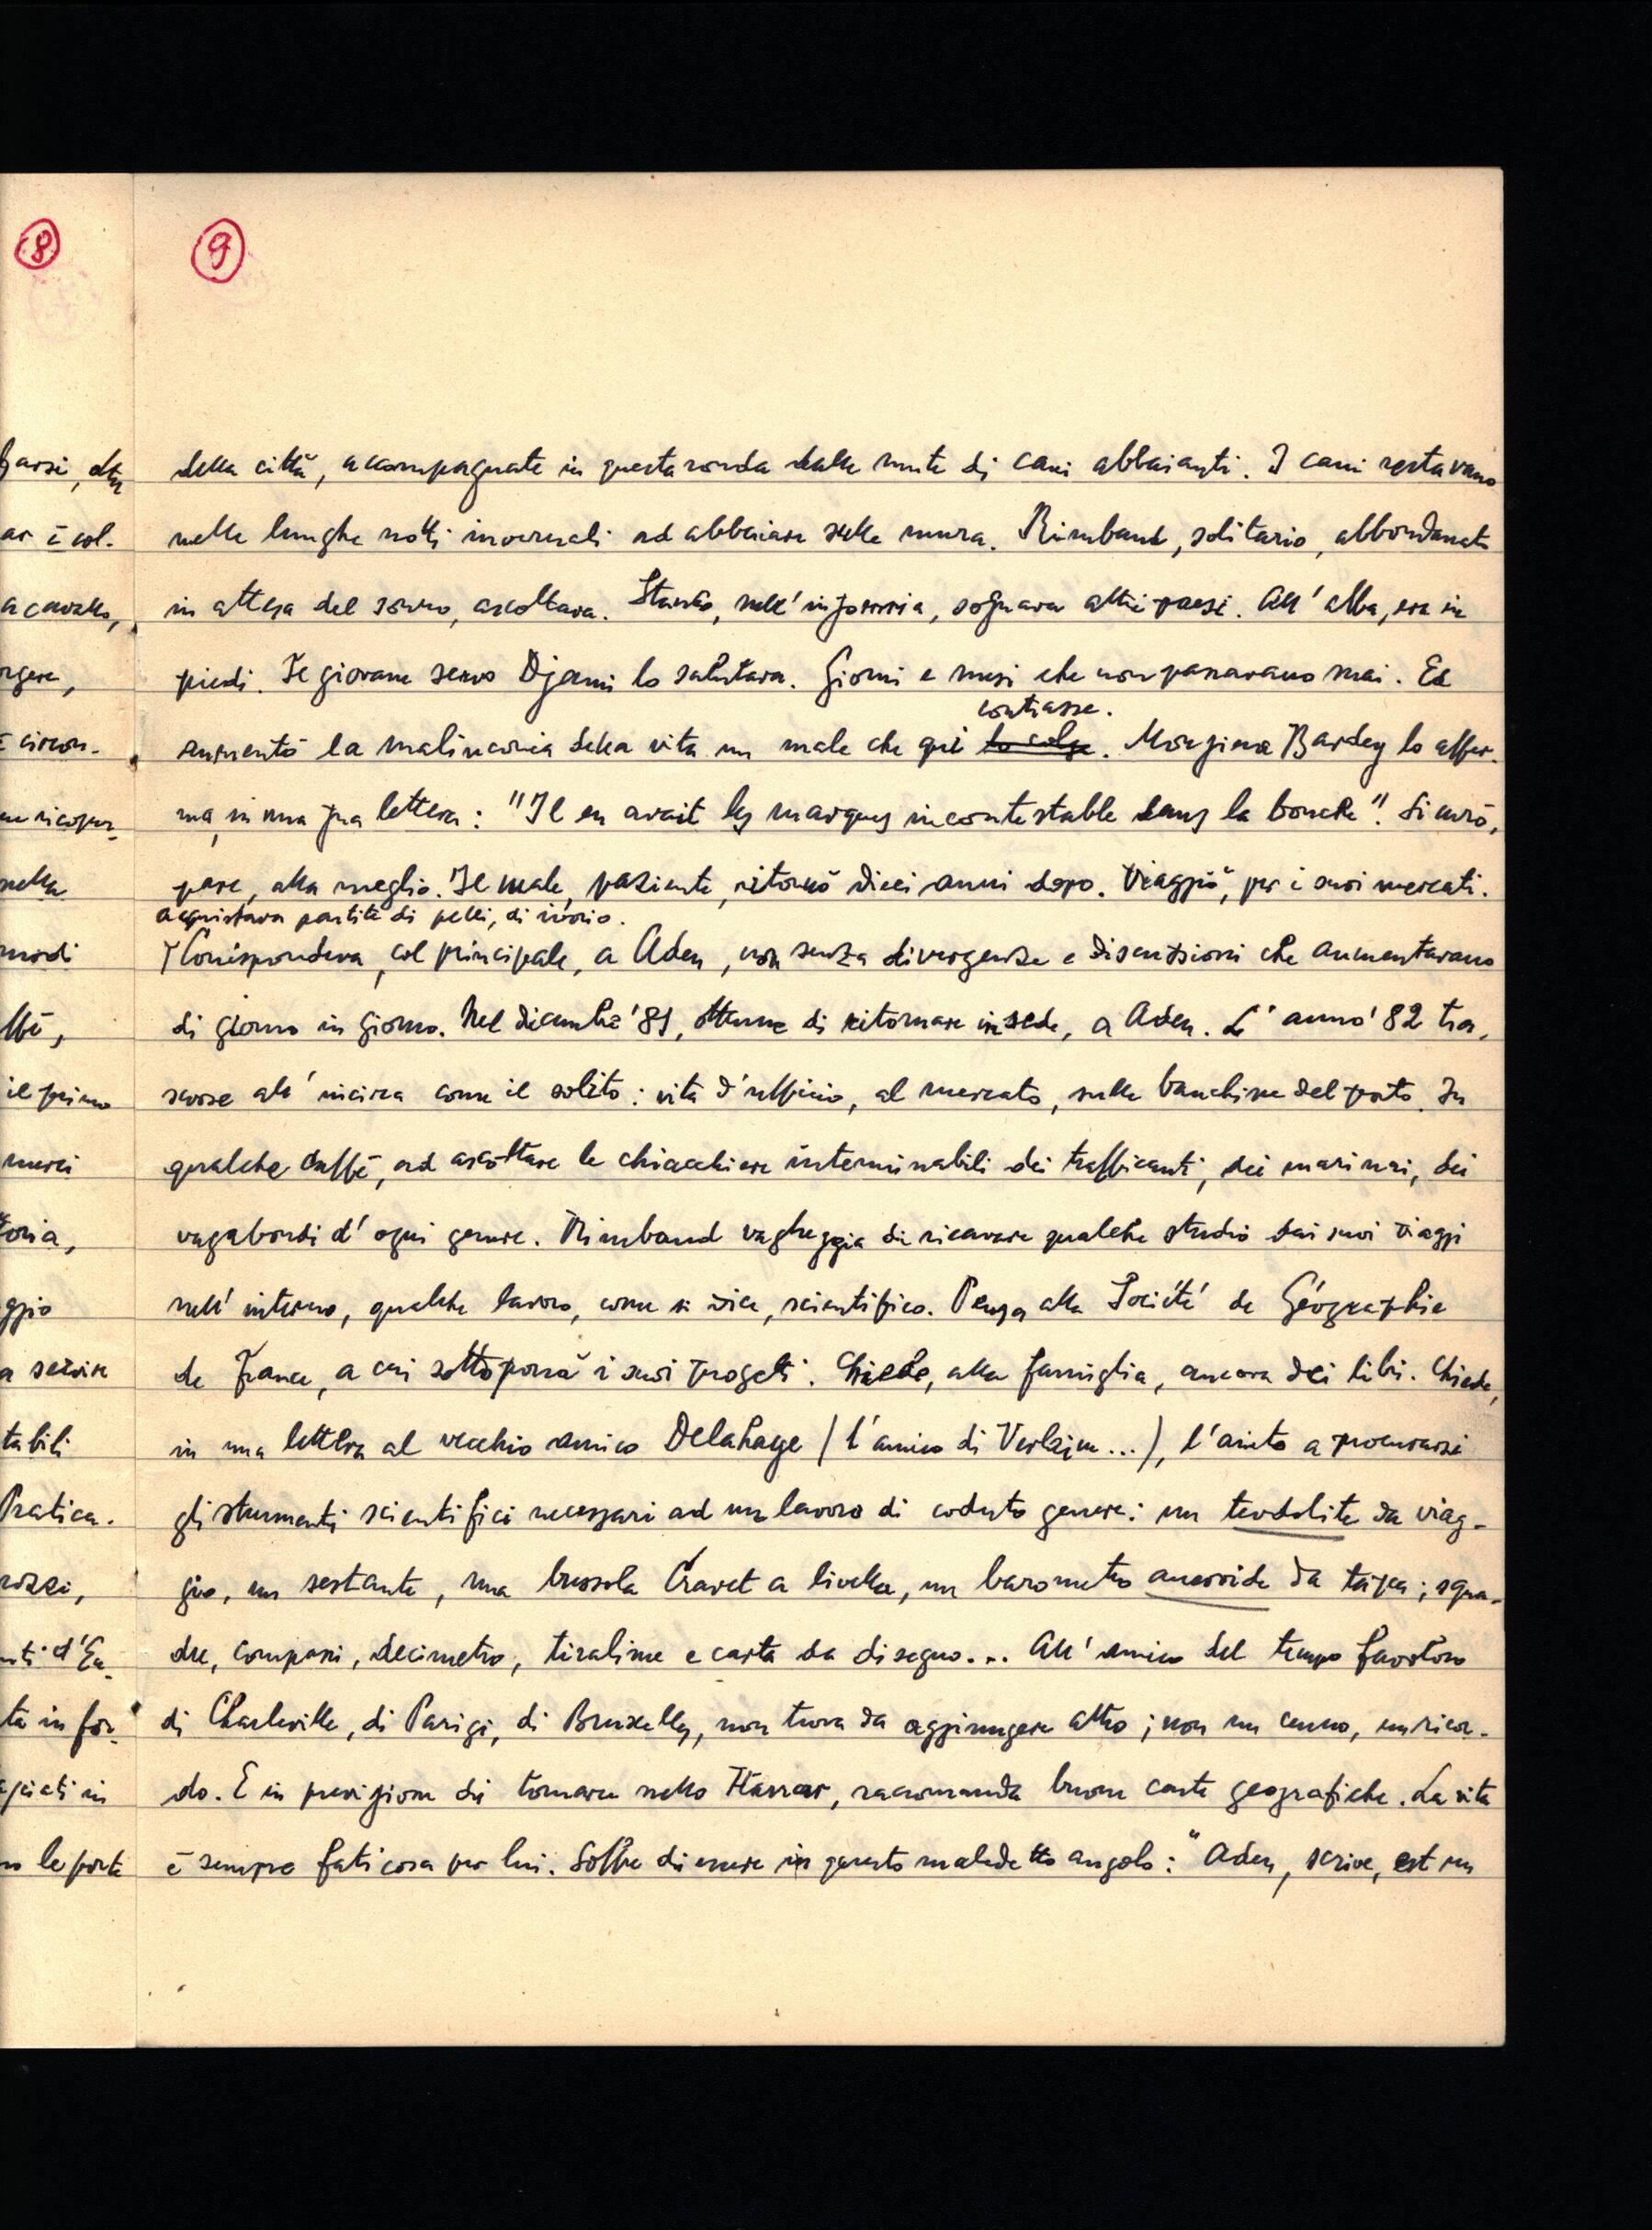 8
9
della città, accompagnate in questa ronda dalle mute di cani abbaianti. I cani restavano
nelle lunghe notti invernali ad abbaiare sulle mura. Rimbaud, solitario, abbondanato
in attesa del sonno, ascoltava. Stanco, nell' insonnia, sognava altri paesi. All' alba, era in
piedi. Il giovane servo Djami lo salutava. Giorni e mesi che non passavano mai. Ed
contrasse.
aumentò la malinconia della vita un male che qui lo colse. Monsieur Bardey lo affer-
ma, in una sua lettera: "Il en avait les marques incontestable dans la bouche". Si curò,
pare, alla meglio. Il male, paziente, ritornò dieci anni dopo. Viaggiò, per i suoi mercati.
acquistava partite di pelli, di avorio.
Corrispondeva, col principale, a Aden, non senza divergenze e discussioni che aumentavano
di giorno in giorno. Nel dicembre '81, ottenne di ritornare in sede, a Aden. L' anno '82 tra-
scorse all' incirca come il solito: vita d'ufficio, al mercato, sulle banchine del porto. In
qualche caffè, ad ascoltare le chiacchiere interminabili dei trafficanti, dei marinai, dei
vagabondi d' ogni genere. Rimbaud vagheggia di ricavare qualche studio dai suoi viaggi
nell' interno, qualche lavoro, come si dice, scientifico. Pensa alla Société de Géographie
de France, a cui sottoporrà i suoi progetti. Chiede, alla famiglia, ancora dei libri. Chiede,
in una lettera al vecchio amico Delahaye (l'amico di Verlaine...), l'aiuto a procurarsi
gli strumenti scientifici necessari ad un lavoro di codesto genere: un teodolite da viag-
gio, un sestante, una bussola Cravet a livella, un barometro aneroide da tasca; squa-
dre, compassi, decimetro, tiralinee e carta da disegno... All' amico del tempo favoloso
di Charleville, di Parigi, di Bruxelles, non trova da aggiungere altro; non un cenno, un ricor-
do. E in previsione di tornare nello Harrar, raccomanda buone carte geografiche. La vita
è sempre faticosa per lui. Soffre di essere in questo maledetto angolo: "Aden, scrive, est un